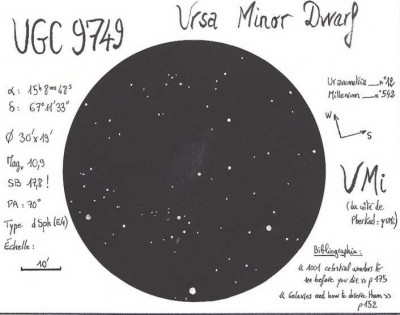 UGC 9749
Ursa Minor Dwarf
α: 15h 8m 48s
δ: 67° 11' 33"
Ø 30'x19'
Magv 10,9
SB 17,8!
PA = 70°
Type dSph (E4)
Échelle:
10'
Uranometria __ n°12
Millenium __ n°542
W
S
UMi
(du côté de
Pherkad: γUMi)
Bibliographie:
« 1001 celestial wonders to
see before you die » p175
« Galaxies and how to observe them »
p152